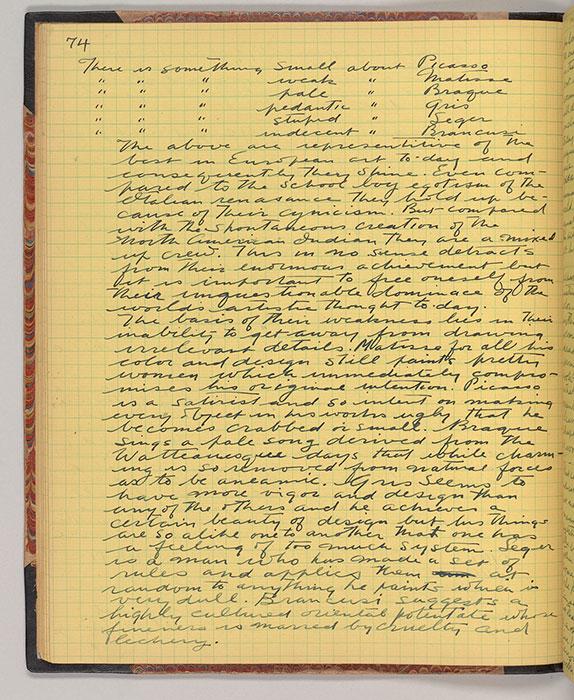 74
There is something small about Picasso
" " " weak " Matisse
" " " pale " Braque
" " " pedantic " Gris
" " " stupid " Leger
" " " indecent " Brancusi
The above are representitive of the
best in European art to-day and
consequently they shine. Even com-
pared to the school boy egotism of the
Italian renasance they hold up be-
cause of their cynicism. But compared
with the spontaneous creation of the
North American Indian they are a mixed
up crew. This in no sense detracts
from their enormous achievement but
it is important to free oneself from
their unquestionable dominace of the
worlds artistic thought to-day.
The basis of their weakness lies in their
inability to get away from drawing
irrelevant details. Matisse for all his
color and design still paints pretty
women which immediately compro-
mises his original intention. Picasso
is a satirist and so intent on making
every object in his works ugly that he
becomes crabbed & small. Braque
sings a pale song derived from the
Watteauesque days that while charm-
ing is so removed from natural forces
as to be aneamic. Gris seems to
have more vigor and design than
any of the others and he achieves a
certain beauty of design but his things
are so alike one to another that one has
a feeling of too much system. Leger
is a man who has made a set of
rules and applies them at
random to anything he paints when is
very dull. Brancusi suggests a
highly cultured oriental potentate whose
fineness is marred by cruelty and
lechery.